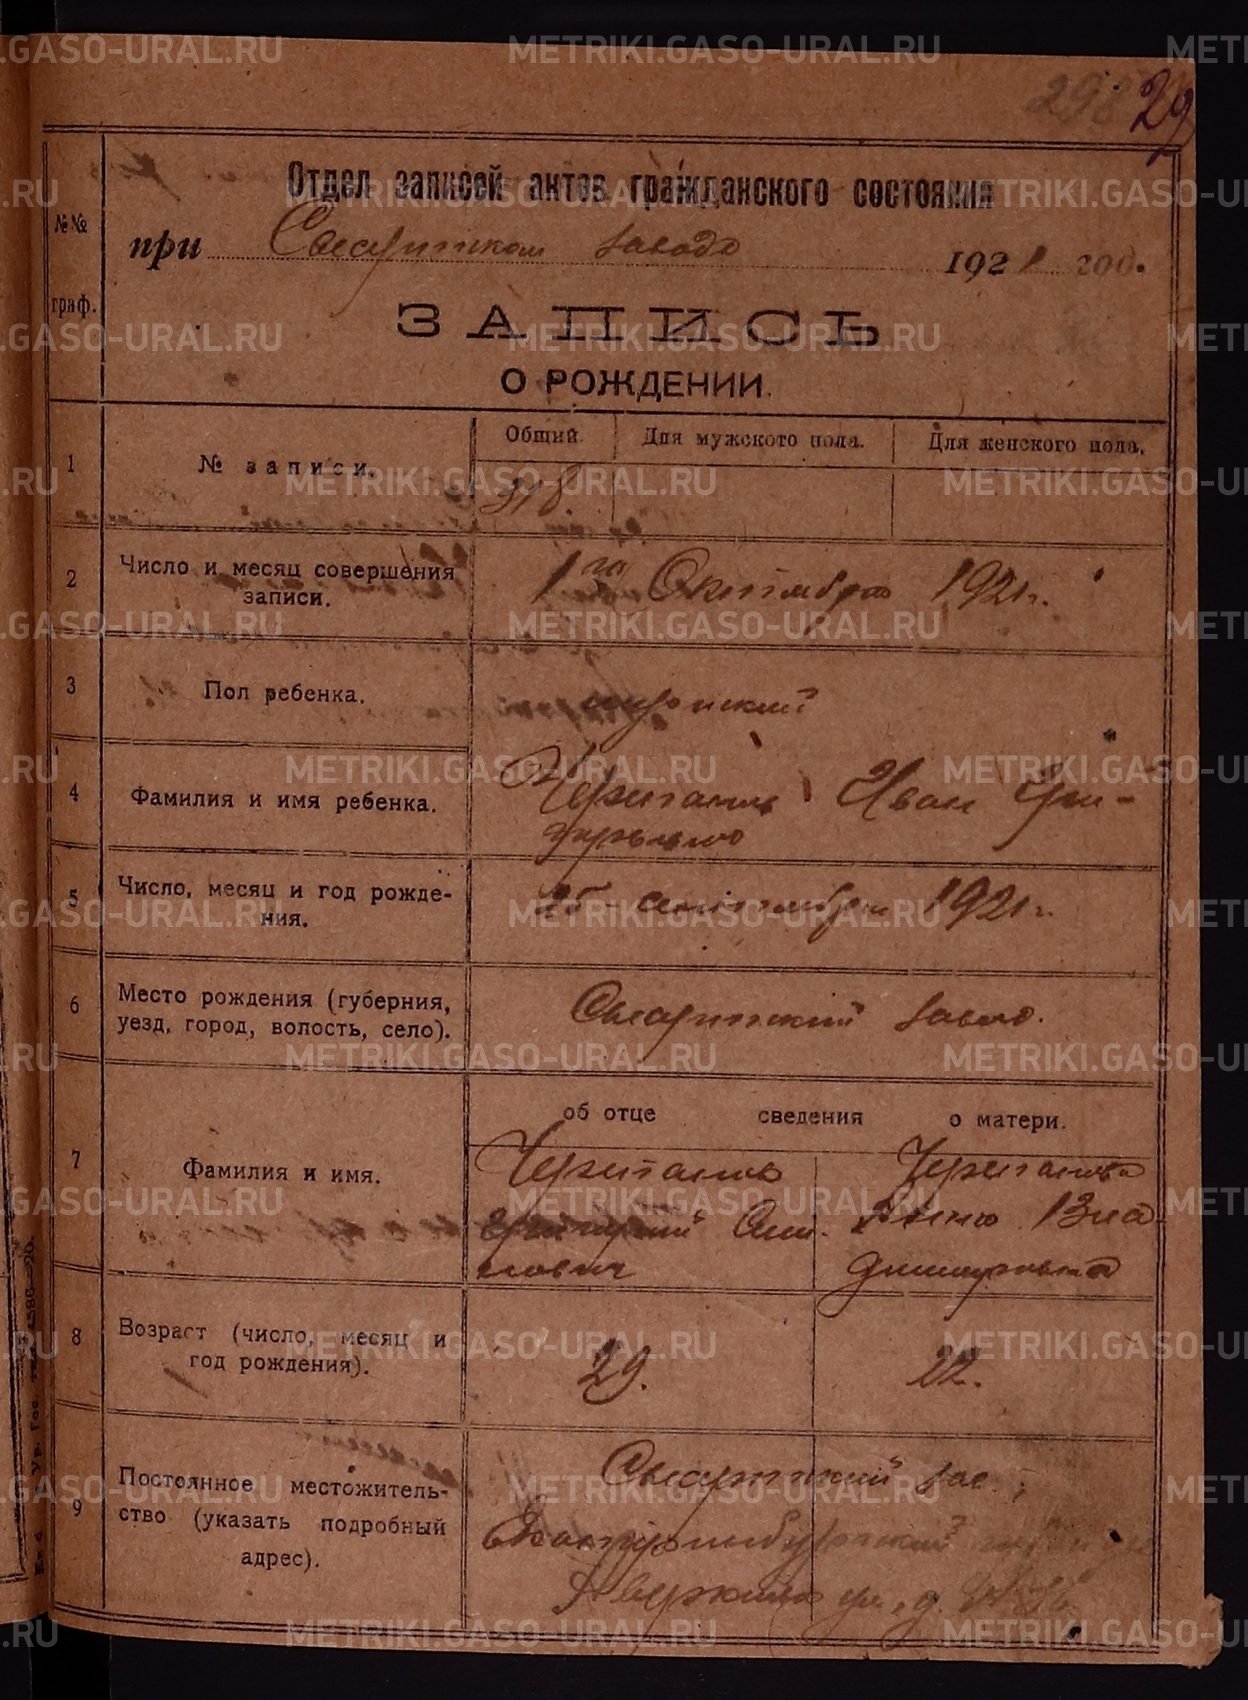 298 29
Отдел записей актов гражданского состояния
при Сысертском заводе 1921 год.
№№ граф.
ЗАПИСЬ
О РОЖДЕНИИ.
1 № записи. Общий. Для мужского пола. Для женского пола.
318.
2 Число и месяц совершения записи. 1го Октября 1921 г.
3 Пол ребенка. мужской
4 Фамилия и имя ребенка. Черепанов Иван Гри-
горьевич
5 Число, месяц и год рожде-
ния. 25 сентября 1921 г.
6 Место рождения (губерния,
уезд, город, волость, село). Сысертский завод.
об отце сведения о матери.
7 Фамилия и имя. Черепанов
Григорий
Черепанова
Владимировна
8 Возраст (число, месяц и
год рождения). 29. 22.
9 Постоянное местожитель-
ство (указать подробный
адрес). Сысертский зав.,
Екатеринбургский
ул., д.
METRIKI.GASO-URAL.RU